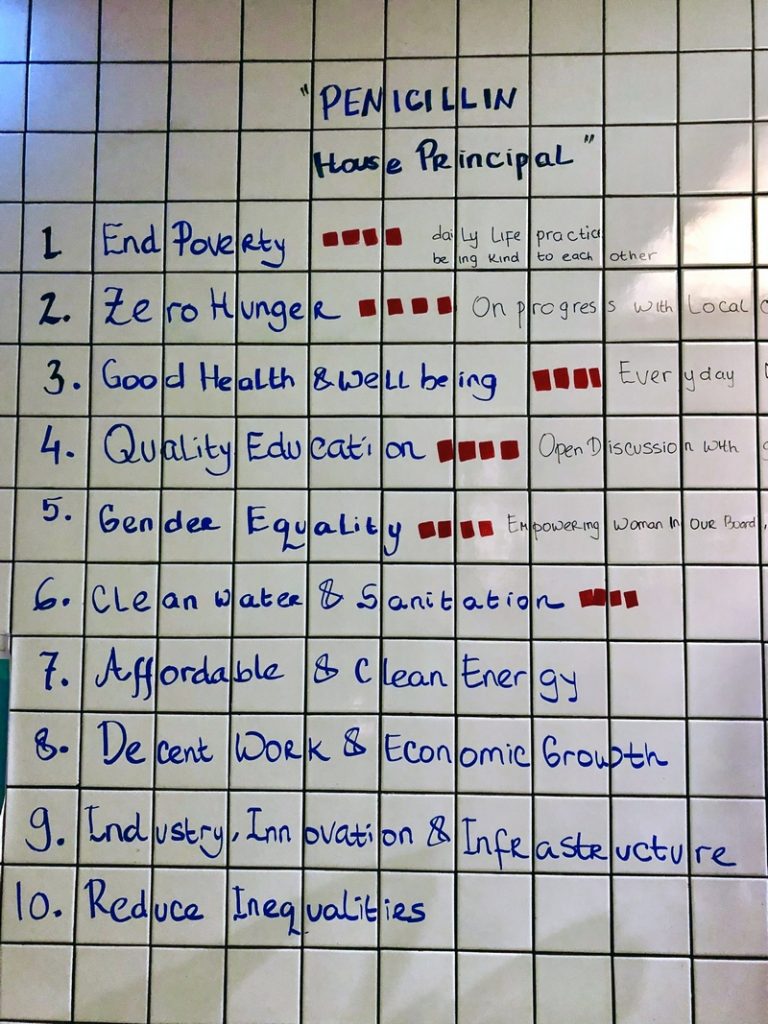 "PENICILLIN
House Principal"
1 End Poverty daily Life practic
being kind to each other
2. Zero Hunger On progress with Local
3. Good Health & well being Everyday
4. Quality Education Open Discussion with
5. Gender Equality Empowering Woman In Our Board,
6. Clean water & Sanitation
7. Affordable & Clean Energy
8. Decent Work & Economic Growth
9. Industry, Innovation & Infrastructure
10. Reduce Inequalities